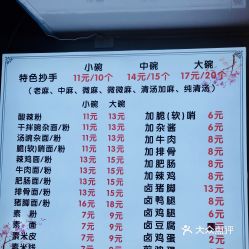 小碗 中碗 大碗
特色抄手 11元/10个 14元/15个 17元/20个
(老麻、中麻、微麻、微微麻、清汤加麻、纯清汤)
小碗 大碗
酸辣粉 11元 13元 加脆(软)哨 6元
干拌豌杂面/粉 11元 13元 加杂酱 6元
汤豌杂面/粉 11元 13元 加牛肉 8元
脆(软)哨面/粉 11元 13元 加排骨 8元
辣鸡面/粉 11元 13元 加肥肠 8元
牛肉面/粉 11元 13元 加辣鸡 8元
肥肠面/粉 11元 13元 卤猪脚 13元
排骨面/粉 11元 13元 卤鸭腿 6元
猪脚面/粉 16元 18元 卤鸡腿 6元
素粉 7元 9元 卤豆腐 2元
素面 7元 9元 卤鸡蛋 2元
素米皮 7元 9元
素米线 7元 9元
大众点评